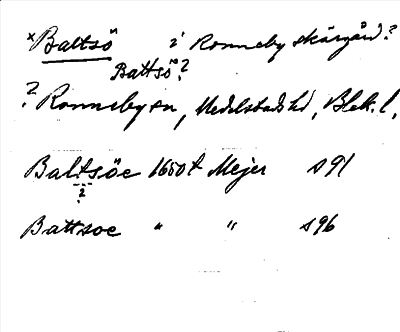 *Baltsö i Ronneby skärgård?
Battsö?
? Ronneby sn, Medelstads hd, Blek. l.
Baltsöe 1650t Mejer s 91
?
Battsoe " " s 96